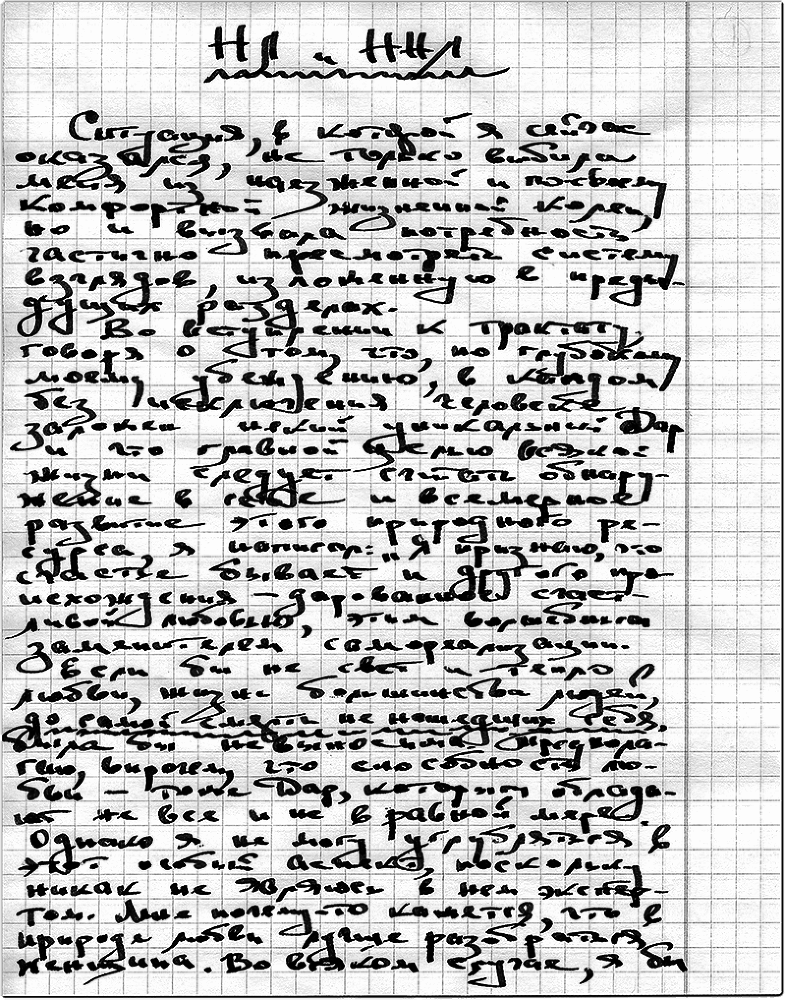 НЛ и ННЛ
Ситуация, в которой я сейчас
оказался, не только выбила
меня из наезженной и по-своему
комфортной жизненной колеи,
но и вызвала потребность
частично пресмотреть систему
взглядов, изложенную в преды-
дущих разделах.
Во вступлении к трактату,
говоря о том, что, по глубокому
моему убеждению, в каждом
без исключения человеке
заложен некий уникальный Дар
и что главной целью всякой
жизни следует считать обнару-
жение в себе и всемерное
развитие этого природного ре-
сурса, я написал: „Я признаю, что
счастье бывает и другого про-
исхождения – дарованное счаст-
ливой любовью, этим волшебным
заменителем самореализации.
Если бы не свет и тепло
любви, жизнь большинства людей,
до самой смерти не нашедших себя,
была бы невыносима. Предпола-
гаю, впрочем, что способность лю-
бви – тоже Дар, которым облада-
ют не все и не в равной мере.
Однако я не могу углубляться в
этот особый аспект, поскольку
никак не являюсь в нем экспер-
том. Мне почему-то кажется, что в
природе любви лучше разобраться
женщина. Во всяком случае, я бы